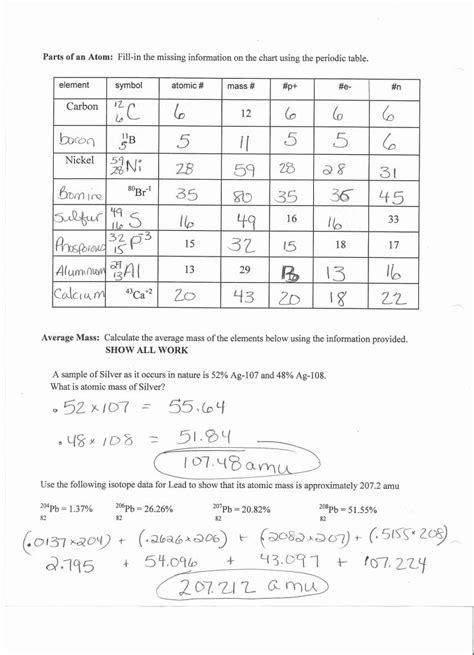 Parts of an Atom: Fill-in the missing information on the chart using the periodic table.
element symbol atomic # mass # #p+ #e- #n
Carbon ¹²₆C 6 12 6 6 6
boron ¹¹₅B 5 11 5 5 6
Nickel ⁵⁹₂₈Ni 28 59 28 28 31
Bomine ⁸⁰Br⁻¹ 35 80 35 36 45
Sulfur ⁴⁹₁₆S 16 49 16 16 33
Phosporous ³²₁₅P⁻³ 15 32 15 18 17
Aluminum ²⁹₁₃Al 13 29 13 16
Calcium ⁴³Ca⁺² 20 43 20 18 22
Average Mass: Calculate the average mass of the elements below using the information provided.
SHOW ALL WORK
A sample of Silver as it occurs in nature is 52% Ag-107 and 48% Ag-108.
What is atomic mass of Silver?
.52 x 107 = 55.64
.48 x 108 = 51.84
107.48 amu
Use the following isotope data for Lead to show that its atomic mass is approximately 207.2 amu
²⁰⁴Pb = 1.37% ²⁰⁶Pb = 26.26% ²⁰⁷Pb = 20.82% ²⁰⁸Pb = 51.55%
82 82 82 82
(.0137x204) + (.2626x206) + (.2082x207) + (.5155x208)
2.795 + 54.096 + 43.097 + 107.224
207.212 amu